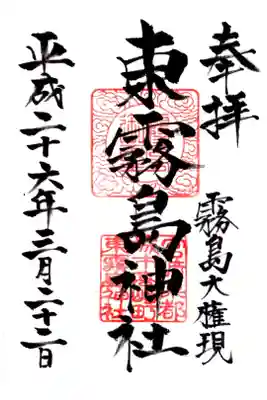 奉拝
霧島大権現
東霧島神社
平成二十六年三月二十二日